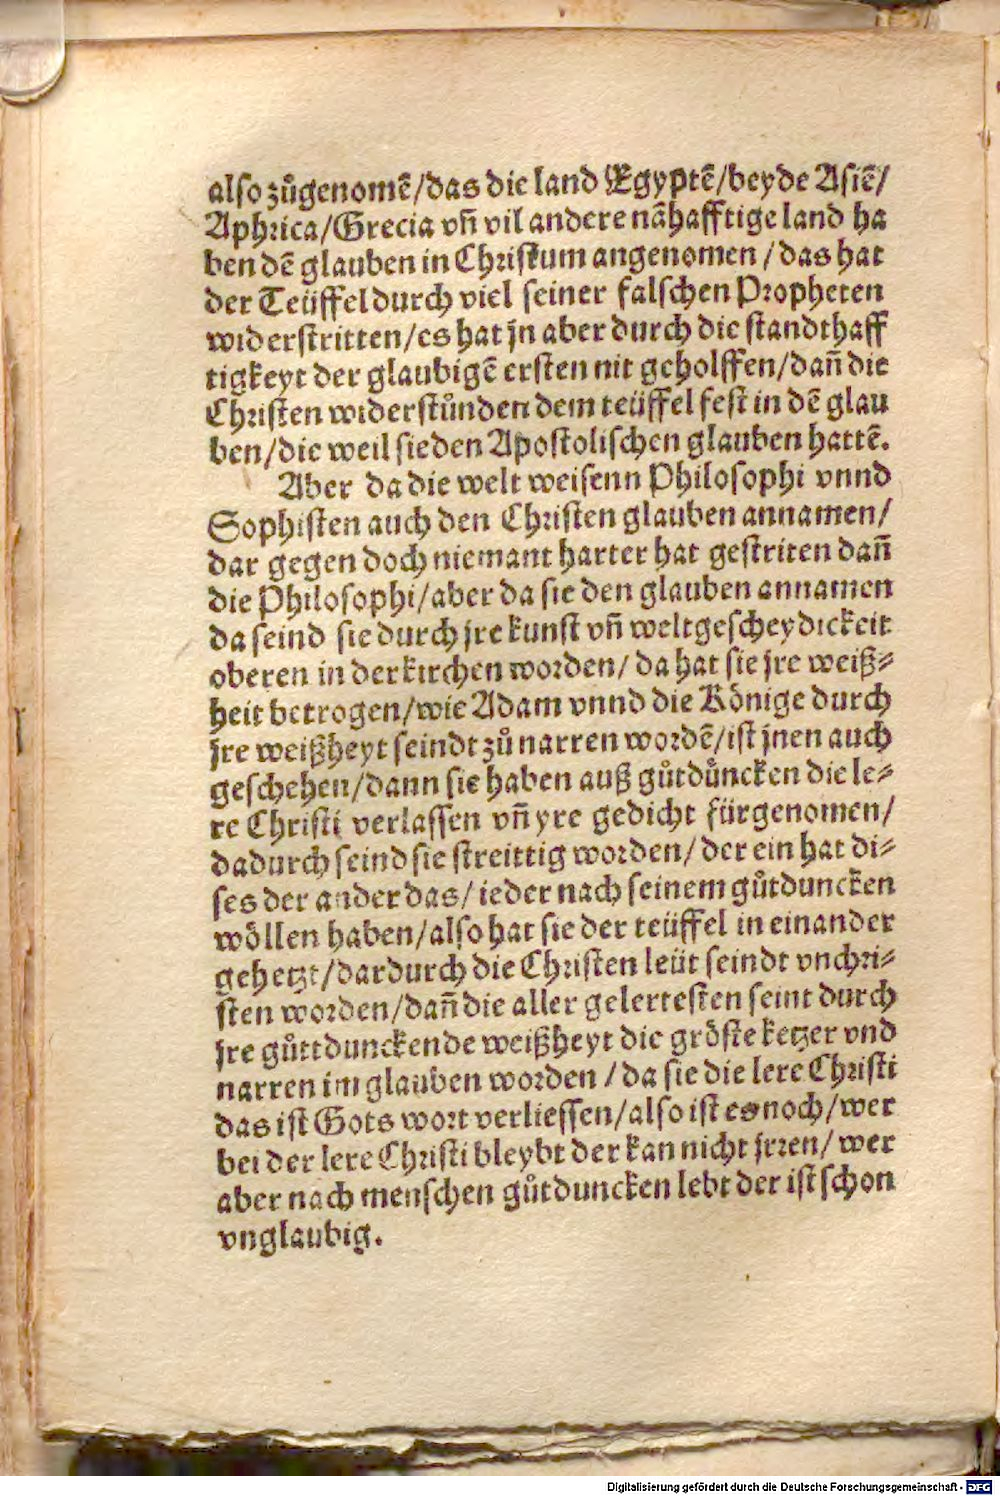 also zůgenomẽ/das die land Egyptẽ/beyde Asiẽ/
Aphrica/Grecia vñ vil andere nãhafftige land ha
ben dẽ glauben in Christum angenomen/das hat
der Teüffel durch viel seiner falschen Propheten
widerstritten/es hat jn aber durch die standthaff
tigkeyt der glaubigẽ ersten nit geholffen/dañ die
Christen widerstůnden dem teüffel fest in dẽ glau
ben/die weil sie den Apostolischen glauben hattẽ.
Aber da die welt weisenn Philosophi vnnd
Sophisten auch den Christen glauben annamen/
dar gegen doch niemant harter hat gestriten dañ
die Philosophi/aber da sie den glauben annamen
da seind sie durch jre kunst vñ weltgescheydickeit
oberen in der kirchen worden/da hat sie jre weiß⸗
heit betrogen/wie Adam vnnd die Könige durch
jre weißheyt seindt zů narren wordẽ/ist jnen auch
geschehen/dann sie haben auß gůtdůncken die le⸗
re Christi verlassen vñ yre gedicht fürgenomen/
dadurch seind sie streittig worden/der ein hat di⸗
ses der ander das/ieder nach seinem gůtduncken
wöllen haben/also hat sie der teüffel in einander
gehetzt/dardurch die Christen leüt seindt vnchri⸗
sten worden/dañ die aller gelertesten seint durch
jre gůttdunckende weißheyt die gröste ketzer vnd
narren im glauben worden/da sie die lere Christi
das ist Gots wort verliessen/also ist es noch/wer
bei der lere Christi bleybt der kan nicht jrren/wer
aber nach menschen gůtduncken lebt der ist schon
vnglaubig.
Digitalisierung gefördert durch die Deutsche Forschungsgemeinschaft - DFG